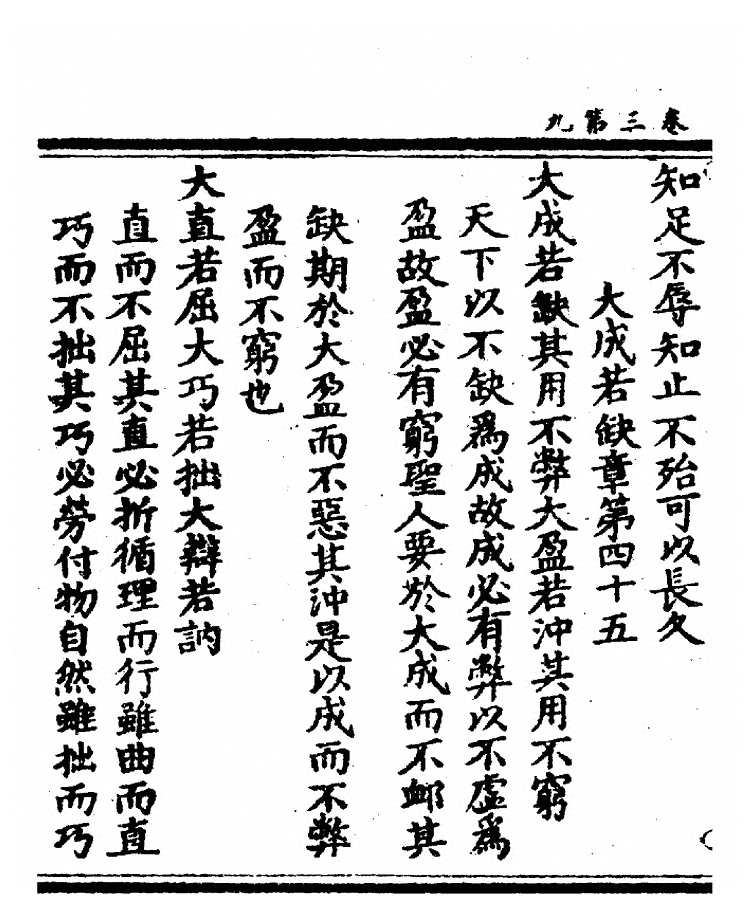 卷三第九
知足不辱知止不殆可以長久
大成若缺章第四十五
大成若缺其用不弊大盈若沖其用不窮
天下以不缺爲成故成必有弊以不虛爲
盈故盈必有窮聖人要於大成而不䘏其
缺期於大盈而不惡其沖是以成而不弊
盈而不窮也
大直若屈大巧若拙大辯若訥
直而不屈其直必折循理而行雖曲而直
巧而不拙其巧必勞付物自然雖拙而巧